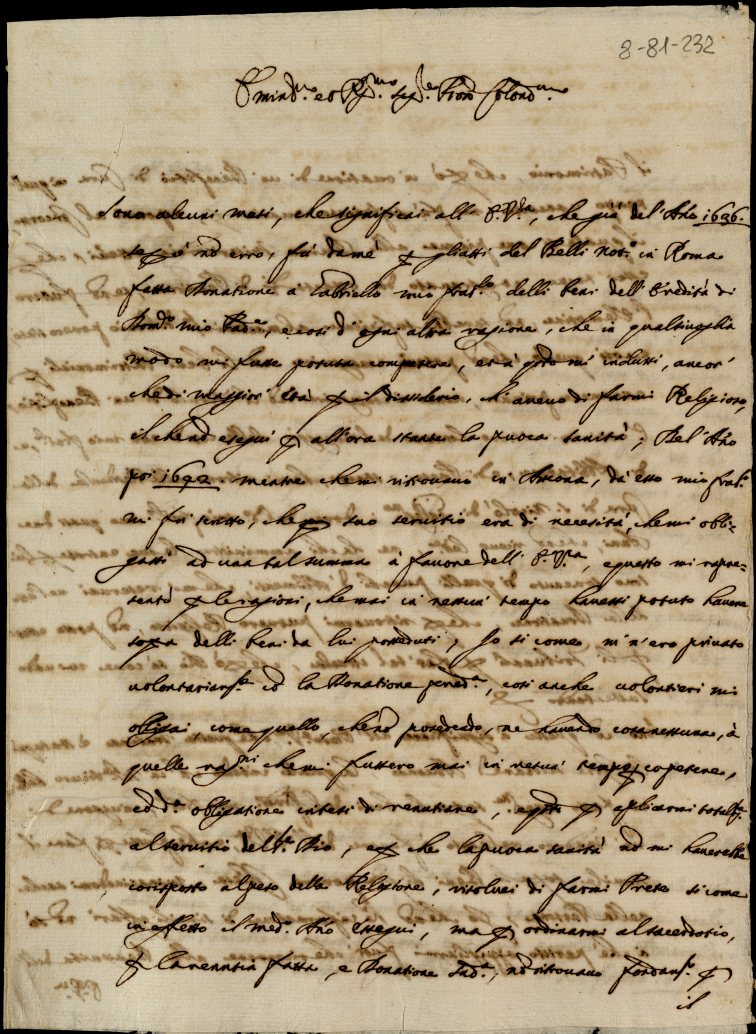 8-81-232
Emin.mo et R.mo Sig.re Pron Colend.mo
Sono alcuni mesi, che significai all' E.V.ra, che già del'Año 1636.
se nõ erro, fù da mè gli atti del Belli Not.o in Roma
fatta Donatione à Gabriello mio frat.llo delli beni dell'Eredità di
mio Pad.e, e così d'ogni altra ragione, che in qualsivoglia
modo mi fusse potuta competere, et à mi indussi, ancor'
che di maggior' età il desiderio, ch'avevo di farmi Religioso,
il che nõ eseguì all'ora stante la puoca sanità; Del'Año
poi 1642. mentre che mi ritrovavo in Ancona, da esso mio frat.llo
mi fù scritto, che suo servitio era di necessità, che mi obli-
gassi ad una tal summa à favore dell' E.V.ra, e questo mi rapre-
sentò le ragioni, che mai in nessun' tempo havessi potuto havere
sopra delli beni da lui posseduti, Io si come m'n'ero privato
volontariam.te cõ la Donatione pred.a, così anche volontieri mi
obligai, come quello, che nõ possedendo, ne havendo cosa nessuna, à
quelle rag.ni che mi fussero mai in nesun' tempo competere,
cõ d.a obligatione intesi di renutiare, e aplicarmi total.te
al servitio del S.r Dio, e che la puoca sanità nõ mi haverebbe
corisposto al peso della Religione, risolvei di farmi Prete si come
in effetto il med.o Año esseguì, ma ordinarmi al sacerdotio,
la renutia fatta, e Donatione Sud.a, nõ ritrovavo
il